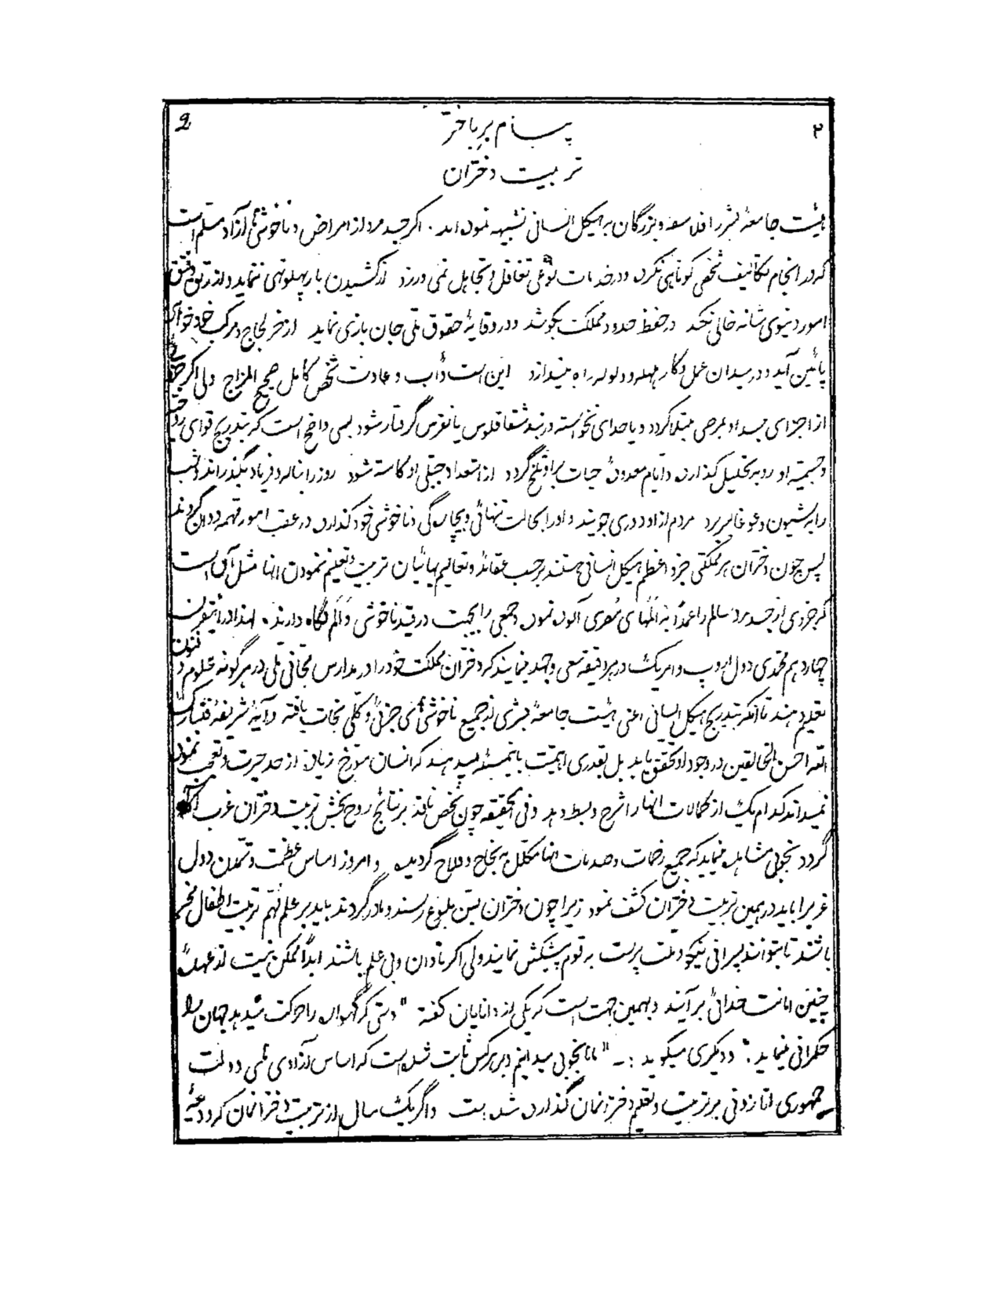 ۲ پیام بر باختر 9
تربیت دختران
هیئت جامعهٔ بشر را فلاسفه و بزرگان به هیکل انسانی تشبیه نموده‌اند. اگر جسد مرد از امراض و ناخوشی‌ها آزاد مسلم است
که در انجام تکالیف شخصی کوتاهی نکرده و در خدمات نوعی تغافل و تجاهل نمی ورزد از کشیدن بار پهلو تهی ننماید و از رتق و فتق
امور دنیوی شانه خالی نکند در حفظ حدود مملکت بکوشد و در وقایهٔ حقوق ملی جان بازی نماید از خر لجاج و مرکب خودخواهی
پائین آید و در میدان عمل و کار بهلهله و ولوله راه میندازد این است دأب و عادت شخص کامل صحیح المزاج ولی اگر جزئی
از اجزای جسد او بمرضی مبتلا گردد و یا خدای نخواسته در بند شقاقلوس یا نقرس گرفتار شود بسی واضح است که بتدریج قوای
جسمیهٔ او رو به تحلیل گذارده و ایام معدودهٔ حیات بر او تلخ گردد از استعداد جبلی او کاسته شود روز را بناله و فریاد بگذراند و شب
را به شیون و غوغا بسر برد مردم از او دوری جویند و او را بحالت تنهائی و بیچارگی و ناخوشی خود گذارده در عقب امور مهمه
پس چون دختران هر مملکتی جزء اعظم هیکل انسانی هستند بر حسب عقائد و تعالیم بهائیان تربیت و تعلیم ننمودن آنها مثل آن است
که جزوی از جسد مرد سالم را عمداً به المهای مسری آلوده نموده جمعی را بجهت در قید ناخوشی و الم نگاه دارند. لهذا در این قرن
چهاردهم محمدی دول اروپ و امریک در هر دقیقه سعی و جهد مینمایند که دختران مملکت خود را در مدارس مجانی ملی در هر گونه علوم و فنون
تعلیم دهند تا آنکه بتدریج هیکل انسانی اعنی هیئت جامعهٔ بشری از جمیع ناخوشی‌های جزئی و کلی نجات یافته و آیهٔ شریفهٔ فتبارک
الله احسن الخالقین در وجود او تحقق یابد بل بقدری اهمیت باین مسئله میدهند که انسان مورخ زیاده از حد حیرت و تعجب نموده
نمیداند کدام یک از کمالات آنها را شرح و بسط دهد و فی الحقیقه چون شخص ناقد بر نتایج روح بخش تربیت دختران غرب آگاه
گردد بخوبی مشاهده مینماید که جمیع زحمات و صدمات آنها مکلل به نجاح و فلاح گردیده و امروز اساس عظمت و تمدن دول
غربی را باید در همین تربیت دختران کشف نمود زیرا چون دختران بسن بلوغ رسند و مادر گردند باید بر علم مهم تربیت اطفال
باشند تا بتوانند پسرانی نیکو و ملت پرست به قوم پیشکش نمایند ولی اگر نادان و بی علم باشند ابداً ممکن نیست از عهدهٔ
چنین امانت خدائی بر آیند و بهمین جهت است که یکی از دانایان گفته "دستی که گهواره را حرکت میدهد جهان را
حکمرانی مینماید" و دیگری میگوید :ـ "ما بخوبی میدانیم و بر هر کس ثابت شده است که اساس آزادی ملی و دولت
جمهوری اتازونی بر تربیت و تعلیم دخترانمان گذارده شده است و اگر یک سال از تربیت دخترانمان